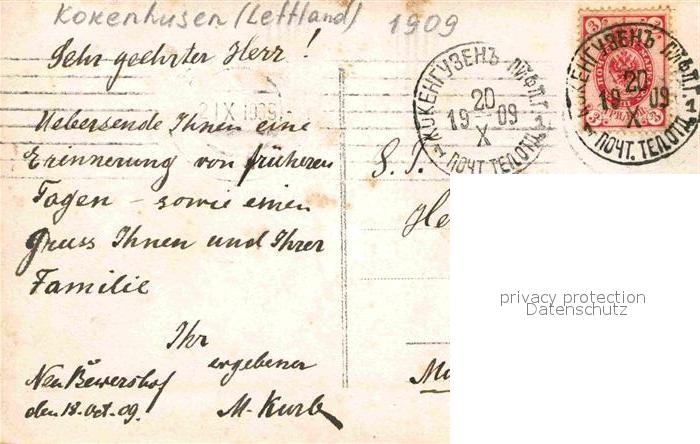 Kokenhusen (Lettland) 1909
Sehr geehrter Herr!
Uebersende Ihnen eine
Erinnerung von früheren
Tagen – sowie einen
Gruss Ihnen und Ihrer
Familie
Ihr
ergebener
M. Kurb
Neu Bewershof
den 18. Oct. 09.
S. T.
He
КОКЕНГУЗЕНЪ ЛИФЛ. Г.
20
19 09
X
ПОЧТ. ТЕЛ. ОТД.
КОКЕНГУЗЕНЪ ЛИФЛ. Г.
20
19 09
X
ПОЧТ. ТЕЛ. ОТД.
3 3
3 3
privacy protection
Datenschutz